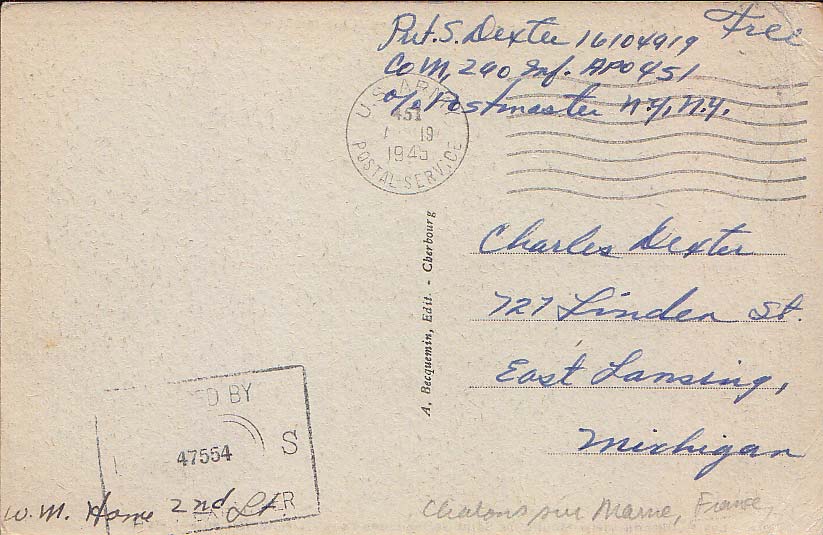 Pvt. S. Dexter 16104919 Free
Co M, 260 Inf. APO 451
c/o Postmaster N.Y., N.Y.
U.S. ARMY
451
19
1945
POSTAL SERVICE
A. Becquemin, Edit. - Cherbourg
Charles Dexter
727 Linden St.
East Lansing,
Michigan
BY
47554
S
R
W. M. 2nd Lt.
Chalons sur Marne, France,